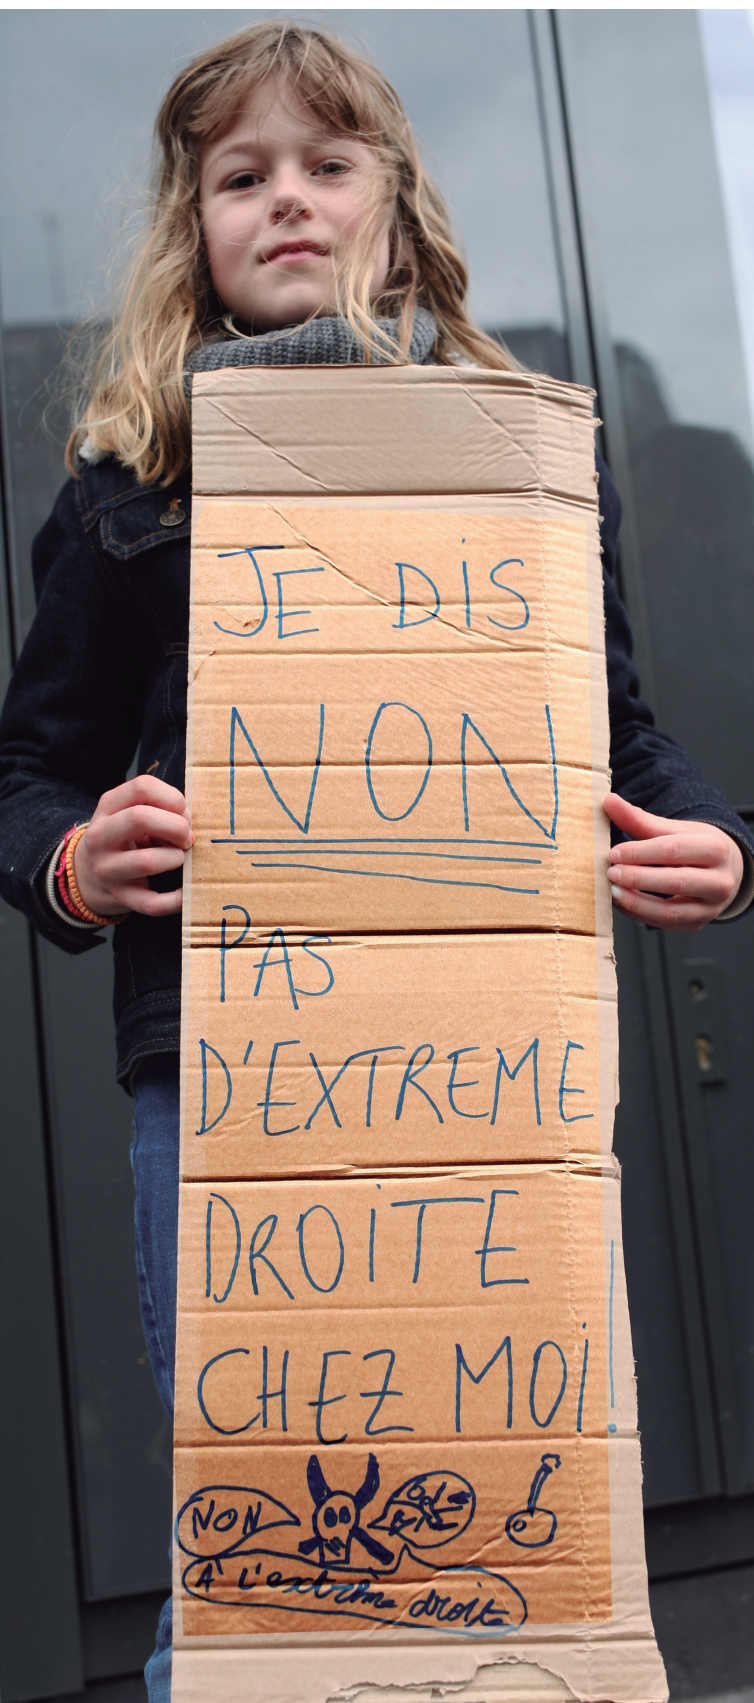 JE DIS
NON
PAS
D'EXTREME
DROITE
CHEZ MOI!
NON
À L'extrême droite